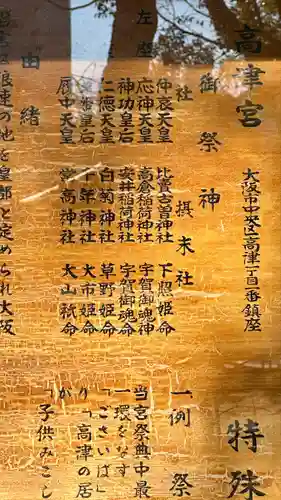 高津宮
大阪市中央区高津一丁目一番鎮座
御祭神
社
左座
仲哀天皇
応神天皇
神功皇后
仁徳天皇
皇后
履中天皇
摂末社
比売古曽神社
下照姫命
高倉稲荷神社
宇賀御魂神
安井稲荷神社
宇賀御魂命
白菊神社
草野姫命
千年神社
大市姫命
常高神社
大山祇命
由緒
浪速の地を皇都と定められ大阪
特殊
一例祭
当宮祭典中最
一環をなす
「ごさいば」
り「高津の居
か
「子供みこし